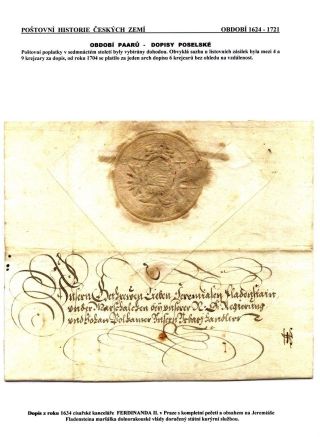 POŠTOVNÍ HISTORIE ČESKÝCH ZEMÍ
OBDOBÍ 1624 - 1721
OBDOBÍ PAARŮ - DOPISY POSELSKÉ
Poštovní poplatky v sedmnáctém století byly vybírány dohodou. Obvyklá sazba u listovních zásilek byla mezi 4 a
9 krejcary za dopis, od roku 1704 se platilo za jeden arch dopisu 6 krejcarů bez ohledu na vzdálenost.
Unsern Getrewen Lieben Jeremiasen
unsere N: Ö Regierung
Dopis z roku 1634 císařské kanceláře FERDINANDA II. v Praze s kompletní pečetí a obsahem na Jeremiáše
Fladensteina maršálka dolnorakouské vlády doručený státní kurýrní službou.